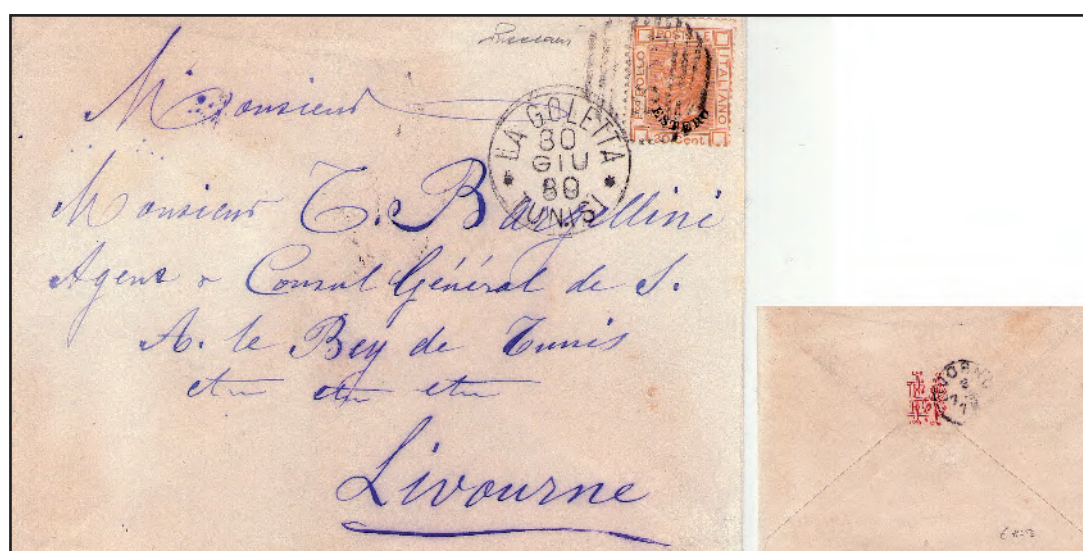 Monsieur
Monsieur T. Bargellini
Agent & Consul Général de S.
A. le Bey de Tunis
etc etc etc
Livourne
LA GOLETTA
30
GIU
80
TUNISI
POSTALE
FRANCOBOLLO
ITALIANO
ESTERO
20 Cent